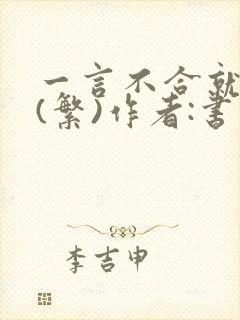 一言不合就
(繁)作者:書
李吉申